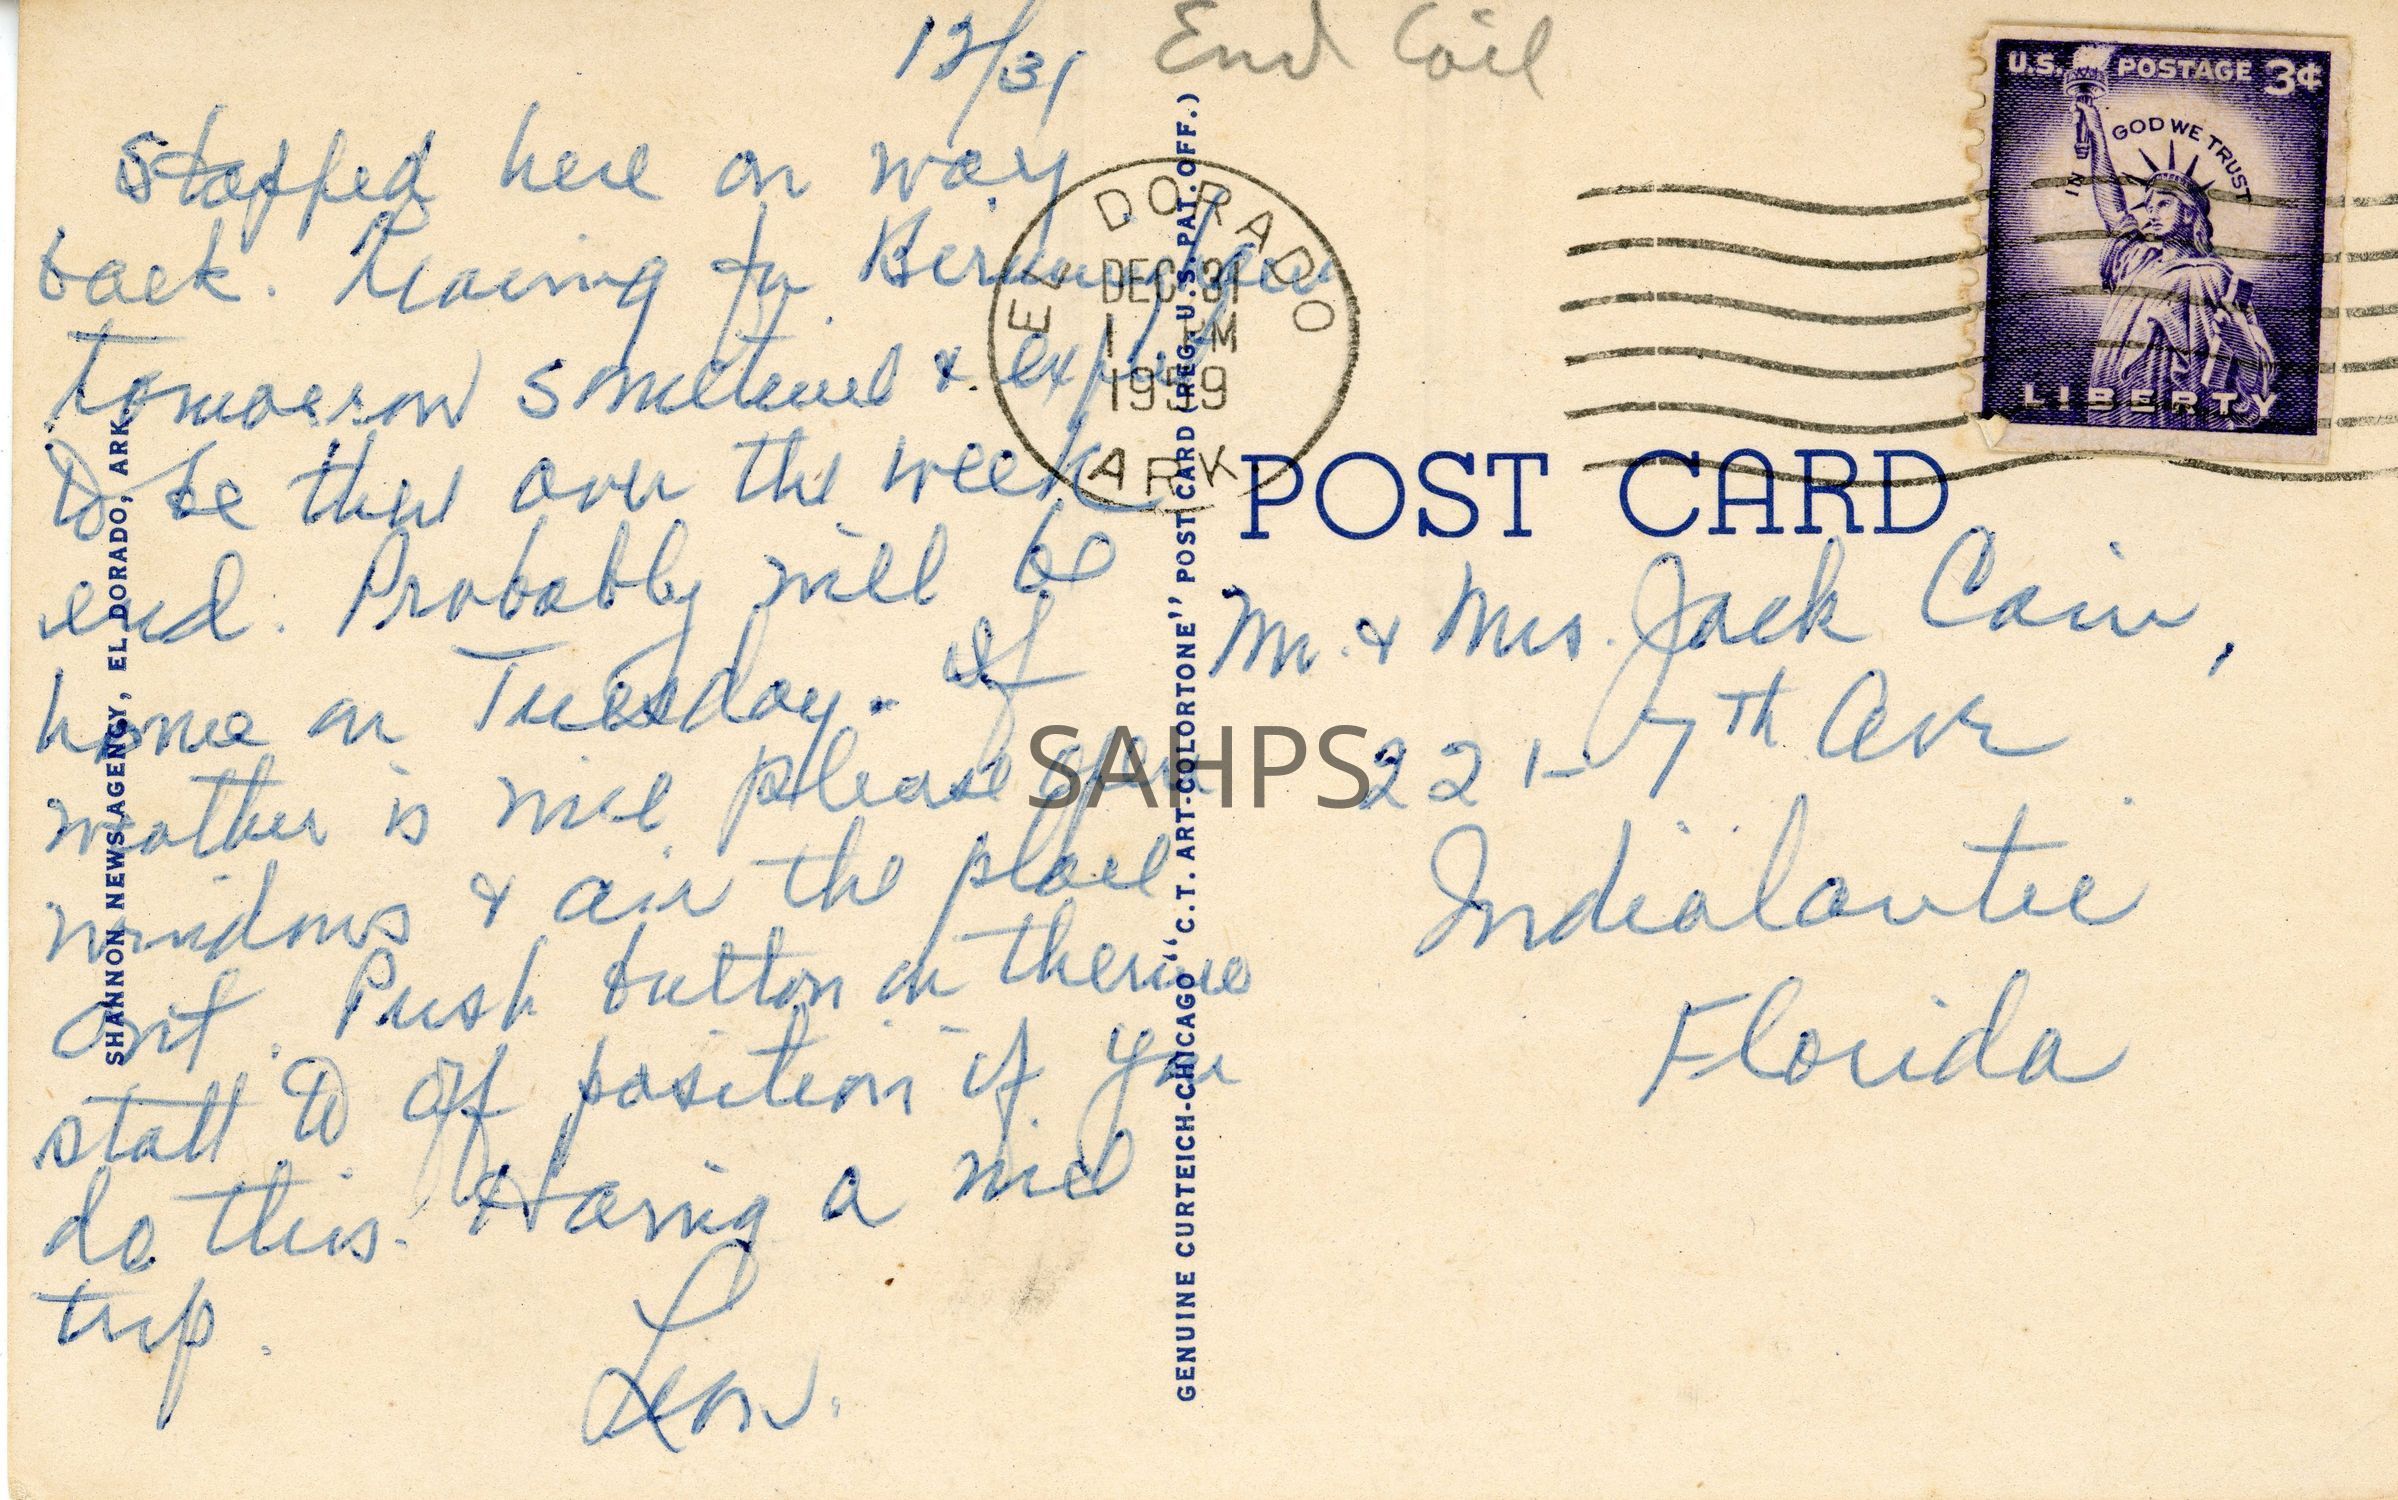 12/31
End Coil
Stopped here on way
back. Leaving for Birmingham
tomorrow sometime & expect
to be there over the week
end. Probably will be
home on Tuesday. If
weather is nice please open
windows & air the place
out. Push button on thermo
statt to off position if you
do this. Having a nice
trip.
Leon.
U.S. POSTAGE 3¢
IN GOD WE TRUST
LIBERTY
EL DORADO
DEC 31
1959
ARK
POST CARD
Mr. & Mrs. Jack Cain,
221-7th Ave
Indialantic
Florida
SHANNON NEWS AGENCY, EL DORADO, ARK.
GENUINE CURTEICH-CHICAGO "C.T. ART-COLORTONE" POST CARD (REG. U.S. PAT. OFF.)
SAHPS